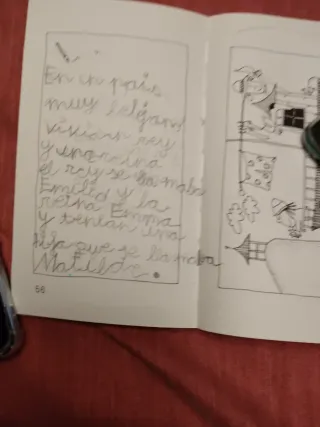 En un país
muy lejano
vivían rey
y una reina
el rey se llamaba
Emilio y la
reina Emma
y tenían una
hija que se llamaba
Matilde.
56